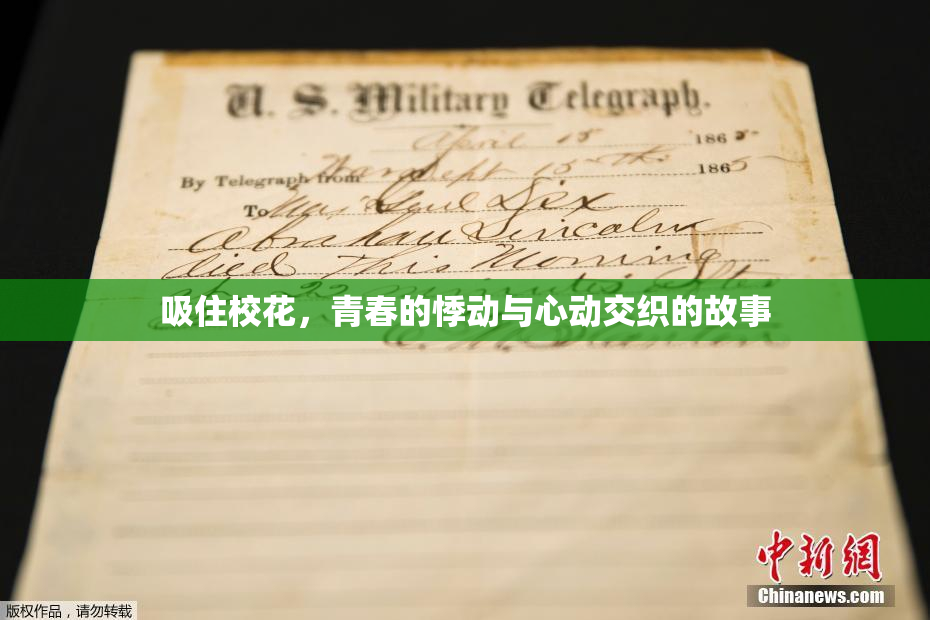 U. S. Military Telegraph.
April 15 1865
By Telegraph from War Dept 15th 1865
To Maj Genl Dix
Abraham Lincoln
died This Morning
at 22 minutes after
吸住校花，青春的悸动与心动交织的故事
E. M. Stanton
中新网
Chinanews.com
版权作品，请勿转载